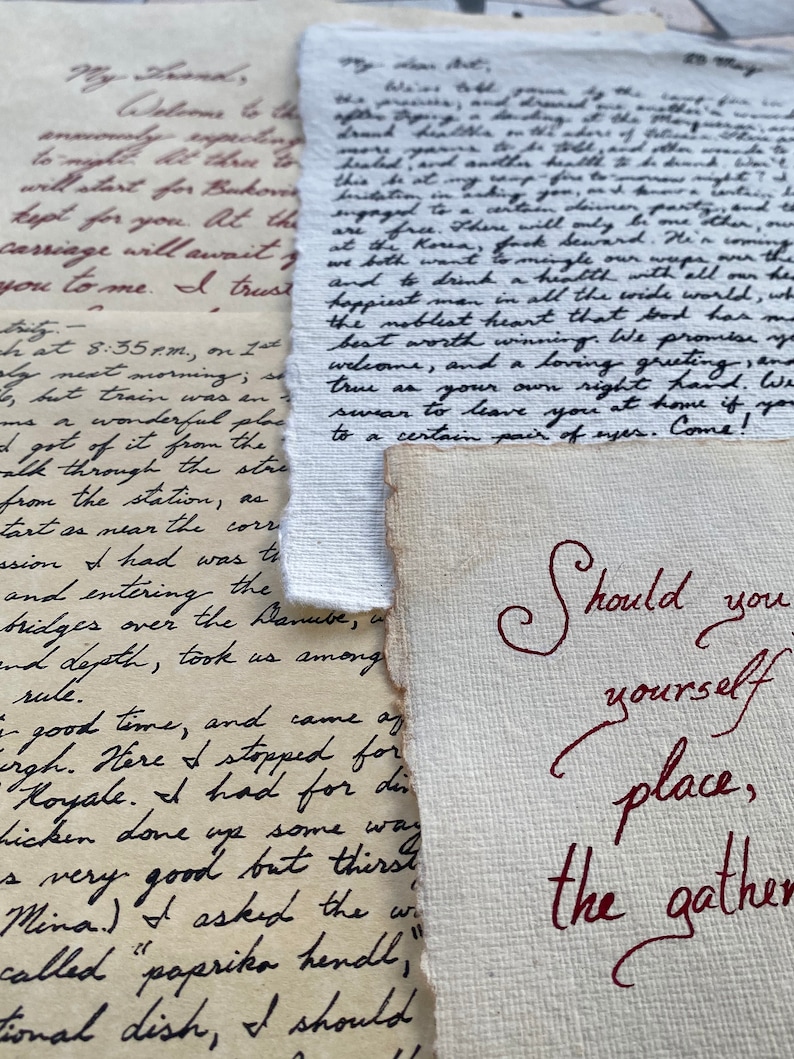 My Friend,
Welcome to th
anxiously expecting
to-night. At three to
will start for Bukovi
kept for you. At th
carriage will await y
you to me. I trust
My dear Art,
May
We've told yarns by the camp-fire in
the prairies; and dressed one another's wound
after trying a landing at the Marquesas; and
drunk healths on the shore of Titicaca.
more yarns to be told, and other wounds to
healed, and another health to be drunk. Won't
this be at my camp-fire to-morrow night? I
hesitation in asking you, as I know a certain l
engaged to a certain dinner party, and th
are free. There will only be one other, our
at the Korea, Jack Seward. He's coming
we both want to mingle our weeps over th
and to drink a health with all our hea
happiest man in all the wide world, wh
the noblest heart that God has ma
best worth winning. We promise yo
welcome, and a loving greeting, and
true as your own right hand. We
swear to leave you at home if you
to a certain pair of eyes. Come!
tritz.—
ch at 8:35 P.M., on 1st
ly next morning; s
6, but train was an
ms a wonderful plac
d got of it from the
alk through the stre
from the station, as
tart as near the corr
ssion I had was th
and entering the
bridges over the Danube, w
and depth, took us among
rule.
good time, and came af
urgh. Here I stopped for
Royale. I had for din
hicken done up some way
s very good but thirst
Mina.) I asked the w
called "paprika hendl,"
tional dish, I should
Should you
yourself
place,
the gather